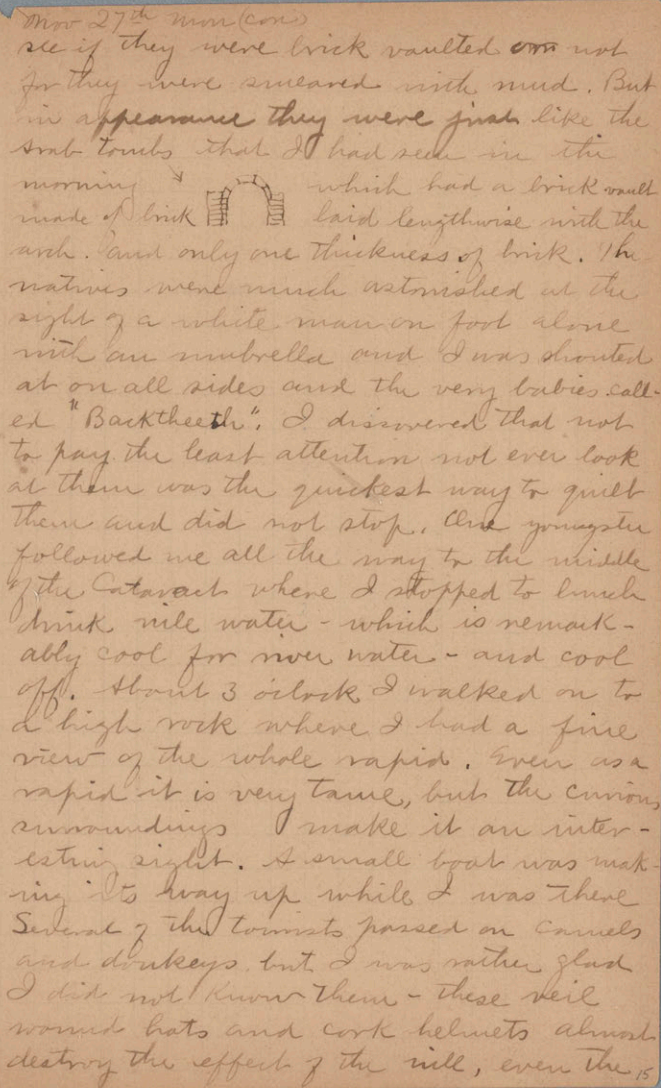 Nov 27th Mon (con)
see if they were brick vaulted or not
for they were smeared with mud. But
in appearance they were just like the
Arab tombs that I had seen in the
morning which had a brick vault
made of brick laid lengthwise with the
arch. and only one thickness of brick. The
natives were much astonished at the
sight of a white man on foot alone
with an umbrella and I was shouted
at on all sides and the very babies call-
ed "Backtheeth". I discovered that not
to pay the least attention not ever look
at them was the quickest way to quiet
them and did not stop. One youngster
followed me all the way to the middle
of the Cataract where I stopped to lunch
drink nile water - which is remark-
ably cool for river water - and cool
off. About 3 o'clock I walked on to
a high rock where I had a fine
view of the whole rapid. Even as a
rapid it is very tame, but the curious
surroundings make it an inter-
esting sight. A small boat was mak-
ing its way up while I was there
Several of the tourists passed on camels
and donkeys, but I was rather glad
I did not know them - these veil
wound hats and cork helmets almost
destroy the effect of the nile, even the
15